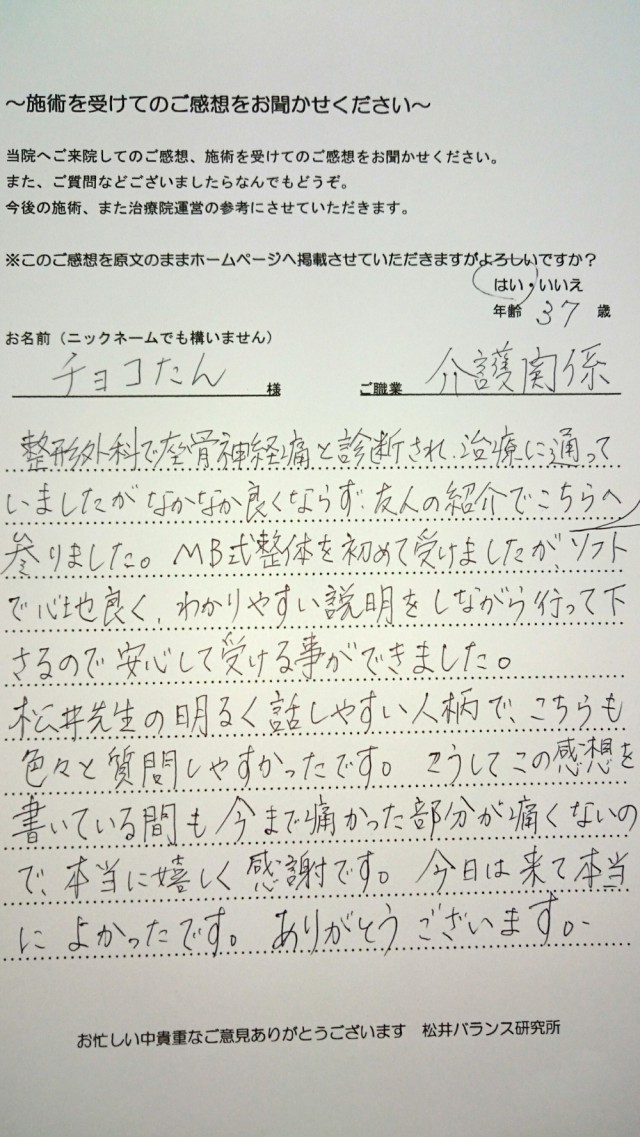 ～施術を受けてのご感想をお聞かせください～
当院へご来院してのご感想、施術を受けてのご感想をお聞かせください。
また、ご質問などございましたらなんでもどうぞ。
今後の施術、また治療院運営の参考にさせていただきます。
※このご感想を原文のままホームページへ掲載させていただきますがよろしいですか？
はい・いいえ
年齢 37 歳
お名前（ニックネームでも構いません）
チョコたん 様 ご職業 介護関係
整形外科で坐骨神経痛と診断され、治療に通って
いましたがなかなか良くならず、友人の紹介でこちらへ
参りました。MB式整体を初めて受けましたが、ソフト
で心地良く、わかりやすい説明をしながら行って下
さるので安心して受ける事ができました。
松井先生の明るく話しやすい人柄で、こちらも
色々と質問しやすかったです。こうしてこの感想を
書いている間も今まで痛かった部分が痛くないの
で、本当に嬉しく感謝です。今日は来て本当
によかったです。ありがとうございます。
お忙しい中貴重なご意見ありがとうございます 松井バランス研究所